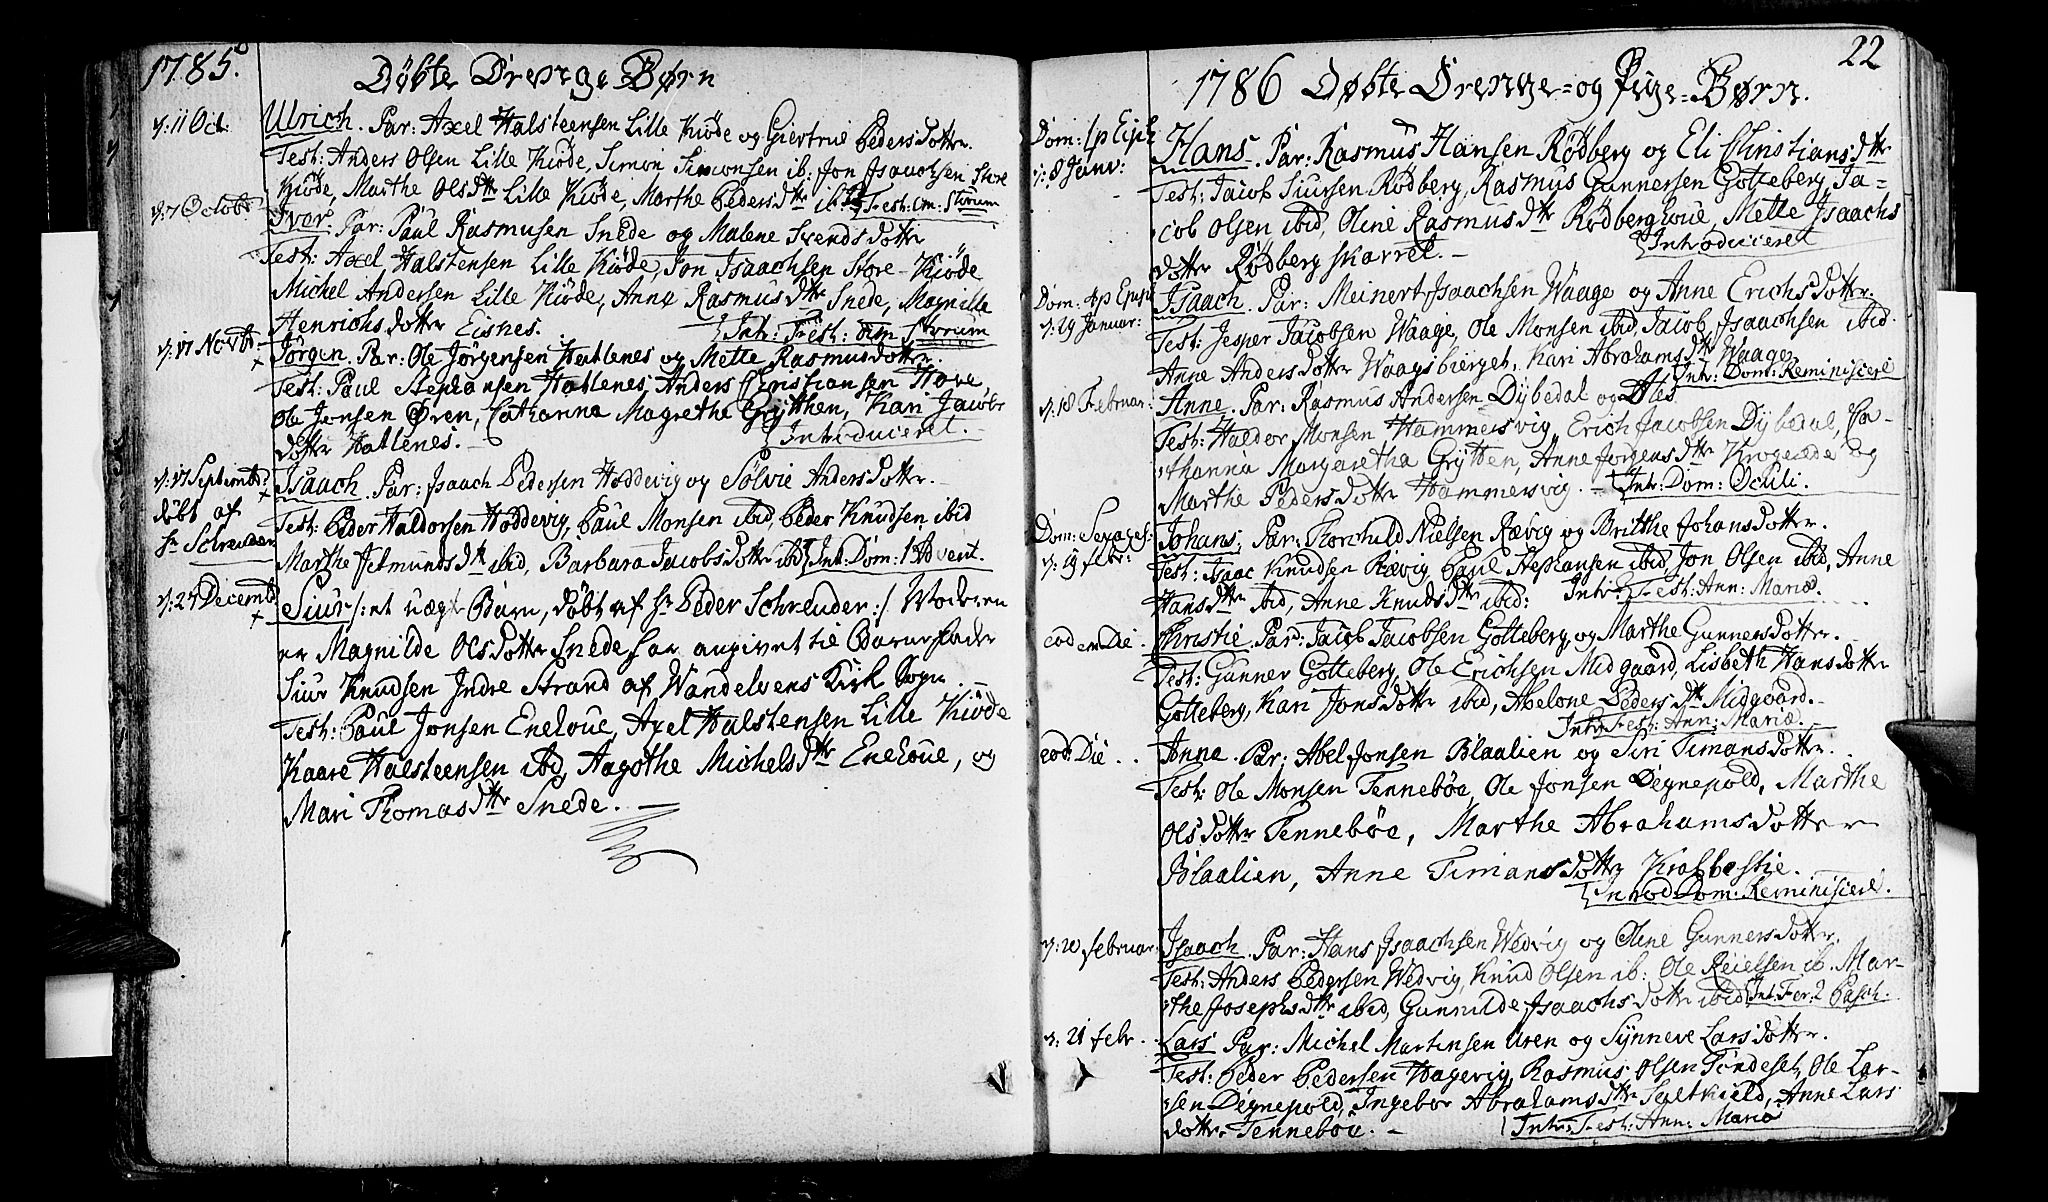 1785.
Døbte Drenge Børn
d: 11 Oct: Ulrich. Par: Axel Halsteensen Lille Kiøde og Giertrue Peders Dotter.
Test: Anders Olsen Lille Kiøde, Simon Simonsen ib: Jon Jsaachsen Store
Kiøde, Marthe Ols Dtr Lille Kiøde, Marthe Peders Dtr ibid Test: Om: Storum
d: 7 Octobr Iver. Par: Paul Rasmusen Snede og Malene Svends Dotter
Test: Axel Halstensen Lille Kiøde, Jon Isaachsen Store-Kiøde
Michel Andersen Lille Kiøde, Anna Rasmus Dtr Snede, Magnille
Henrichs Dotter Eisnes. Intr: Fest: Om: Storum
d: 17 Novbr Jørgen. Par: Ole Jørgensen Hatlenes og Mette Rasmus Dotter.
Test: Paul Stephansen Hatlenes, Anders Christiansen Hove,
Ole Jensen Øren, Catharina Magrethe Grytten, Kari Jacobs
Dotter Hatlenes. Introduceret.
d: 17 Septembr Isaach. Par: Isaach Pedersen Hoddevig og Sølvie Anders Dotter.
døbt af Test: Peder Haldorsen Hoddevig, Paul Monsen ibid, Peder Knudsen ibid
Hr Schreuder Marthe Jetmunds Dtr ibid, Barbara Jacobs Dotter ibid Int: Dom: 1 Advent.
d: 27 Decembr Siur /: et uægt Barn, døbt af Hr Peder Schreuder :/ Moderen
er Magnilde Ols Dotter Snede har angivet til Barne Fader
Siur Knudsen Indre Strand af Wandelvens Kirk Sogn. -
Test: Paul Jonsen Enehoue, Axel Halstensen Lille Kiøde
Kaare Halsteensen ibid, Aagothe Michels Dtr Enehoue, og
Mari Thomas Dtr Snede. -
22
1786 Døbte Drenge- og Pige-Børn.
Dom: 1 p Epiph Hans. Par: Rasmus Hansen Rødberg og Eli Christians Dtr
d: 8 Janv: Test: Jacob Siursen Rødberg, Rasmus Gunnersen Gotteberg, Ja-
cob Olsen ibid, Oline Rasmus Dtr Rødberghoue, Mette Isaachs
Dotter Rødberg skarret. - Introduceret
Dom: 4 p Epiph Isaach. Par: Meinert Isaachsen Waage og Anne Erichs Dotter.
d: 29 Januar: Test: Jesper Jacobsen Waage, Ole Monsen ibid, Jacob Isaachsen ibid.
Anne Anders Dotter Waagsbierget, Kari Abrahams Dtr Waage,
Intr: Dom: Reminiscere
d: 18 Februar: Anne. Par: Rasmus Andersen Dybedal og
Test: Haldor Monsen Hammersvig, Erich Jacobsen Dybedal, Ca-
tharina Margaretha Grytten, Anne Jørgens Dtr og
Marthe Peders Dotter Hammersvig. - Intr: Dom: Oculi.
Dom: Sexages: Johans. Par: Thorchild Nielsen Rævig og Britthe Johans Dotter.
d: 19 febr: Test: Isaac Knudsen Rævig, Paul Stephansen ibid, Jon Olsen ibid, Anne
Hans Dtr ibid, Anne Knuds Dtr ibid: Intr: Fest: Ann: Mariæ.
eodem Die. Christie. Par: Jacob Jacobsen Gotteberg og Marthe Gunners Dotter.
Test: Gunner Gotteberg, Ole Erichsen Midgaard, Lisbeth Hans Dotter
Gotteberg, Kari Jons Dotter ibid, Abelone Peders Dtr Midgaard.
Intr: Fest: Ann: Mariæ.
eod: Die.. Anna. Par: Abel Jonsen Blaalien og Siri Timans Dotter.
Test: Ole Monsen Tennebøe, Ole Jonsen Degnepold, Marthe
Ols Dotter Tennebøe, Marthe Abrahams Dotter
Blaalien, Anne Timans Dotter Krabbestie.
Introd: Dom: Reminiscere.
d: 20 februar: Isaach. Par: Hans Isaachsen Wedvig og Oline Gunners Dotter.
Test: Anders Pedersen Wedvig, Knud Olsen ib: Ole Reielsen ib. Mar-
the Josephs Dtr ibid, Gunnilde Isaachs Dotter ibid Int: Fer: 2 Pasch.
d: 21 febr. Lars Par: Michel Martensen Uren og Synneve Lars Dotter.
Test: Peder Pedersen Hagevig, Rasmus Olsen Ole Lar-
sen Degnepold, Ingebor Abrahams Dtr Saltkield, Anne Lars
Dotter Tennebøe. - Intr: Fest: Ann: Mariæ